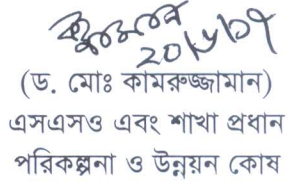 ২০/৬/১৭
(ড. মোঃ কামরুজ্জামান)
এসএসও এবং শাখা প্রধান
পরিকল্পনা ও উন্নয়ন কোষ